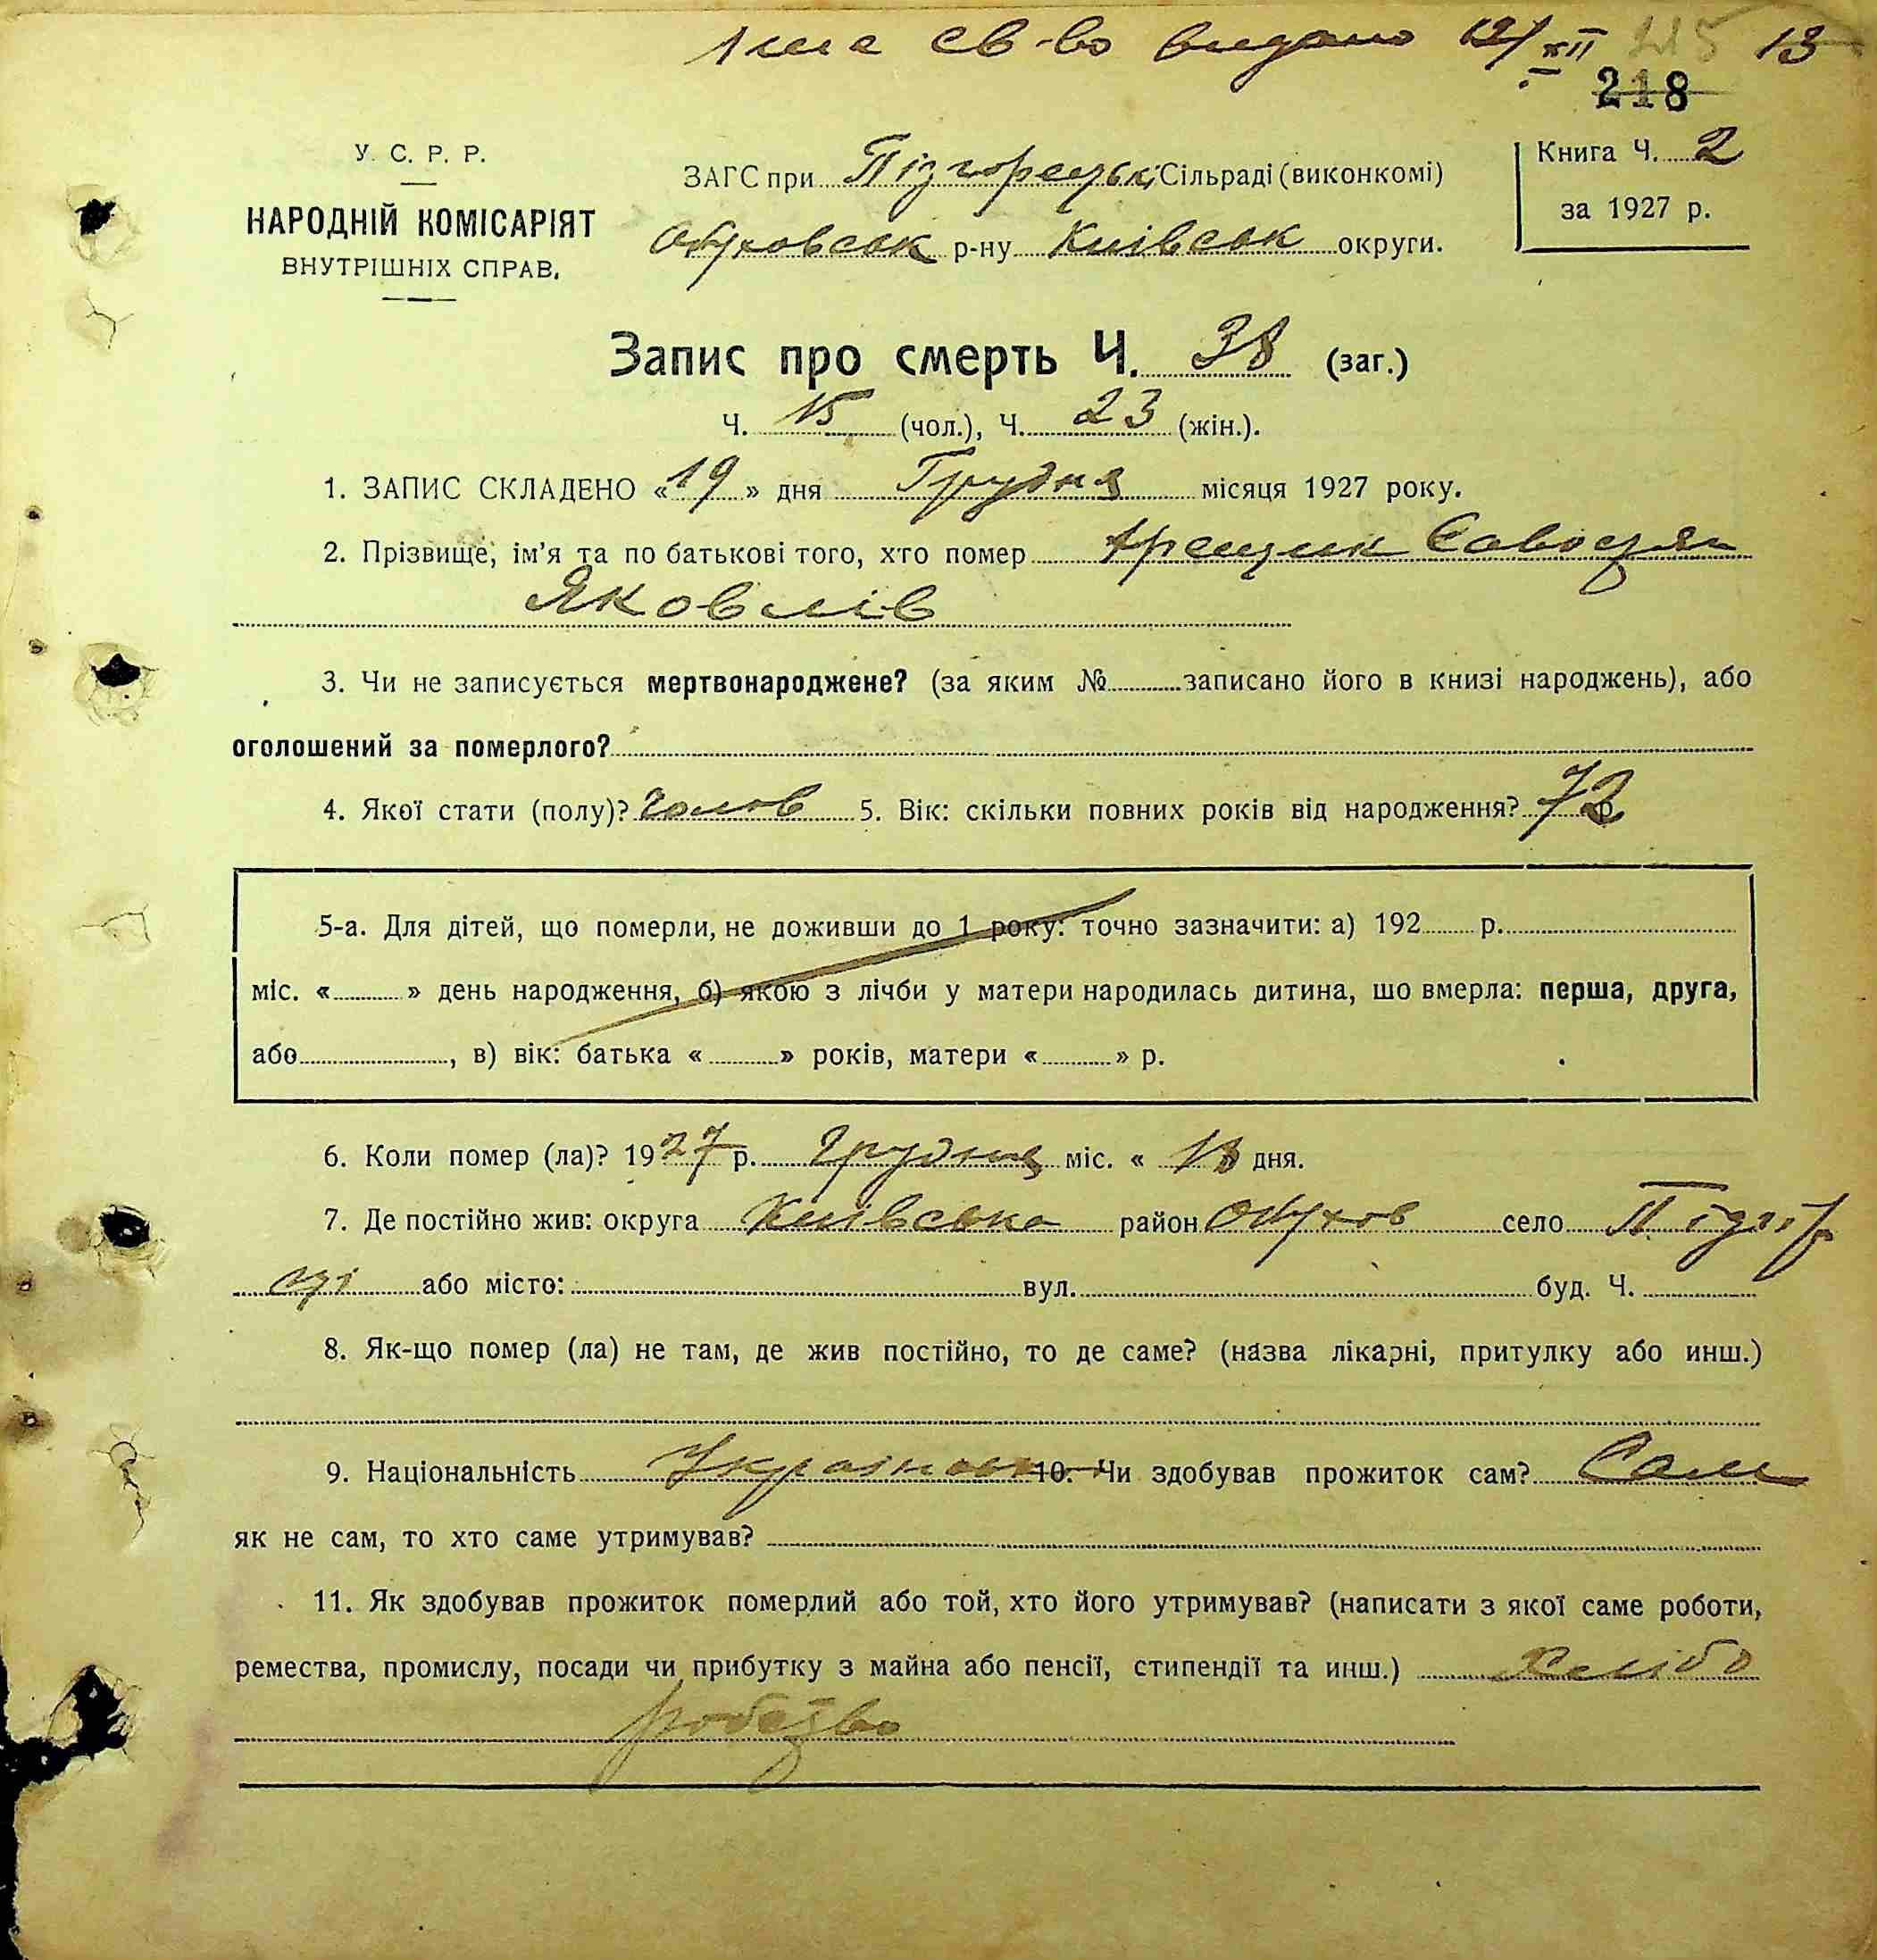 св-во видано 12/XII 215 13
218
У. С. Р. Р.
НАРОДНІЙ КОМІСАРІЯТ
ВНУТРІШНІХ СПРАВ.
ЗАГС при Підгорецькі Сільраді (виконкомі)
Обуховськ р-ну Київськ округи.
Книга Ч. 2
за 1927 р.
Запис про смерть Ч. 38 (заг.)
Ч. 15 (чол.), Ч. 23 (жін.).
1. ЗАПИС СКЛАДЕНО «19» дня Грудня місяця 1927 року.
2. Прізвище, ім'я та по батькові того, хто помер
Яковлів
3. Чи не записується мертвонароджене? (за яким № записано його в книзі народжень), або
оголошений за померлого?
4. Якої стати (полу)? Чолов 5. Вік: скільки повних років від народження? 72 р.
5-а. Для дітей, що померли, не доживши до 1 року: точно зазначити: а) 192 р.
міс. « » день народження, б) якою з лічби у матери народилась дитина, шо вмерла: перша, друга,
або , в) вік: батька « » років, матери « » р.
6. Коли помер (ла)? 1927 р. Грудня міс. « 18 дня.
7. Де постійно жив: округа Київська район Обухов село Підгір
ці або місто: вул. буд. Ч.
8. Як-що помер (ла) не там, де жив постійно, то де саме? (назва лікарні, притулку або инш.)
9. Національність 10. Чи здобував прожиток сам? Сам
як не сам, то хто саме утримував?
11. Як здобував прожиток померлий або той, хто його утримував? (написати з якої саме роботи,
ремества, промислу, посади чи прибутку з майна або пенсії, стипендії та инш.) Хлібо
робство